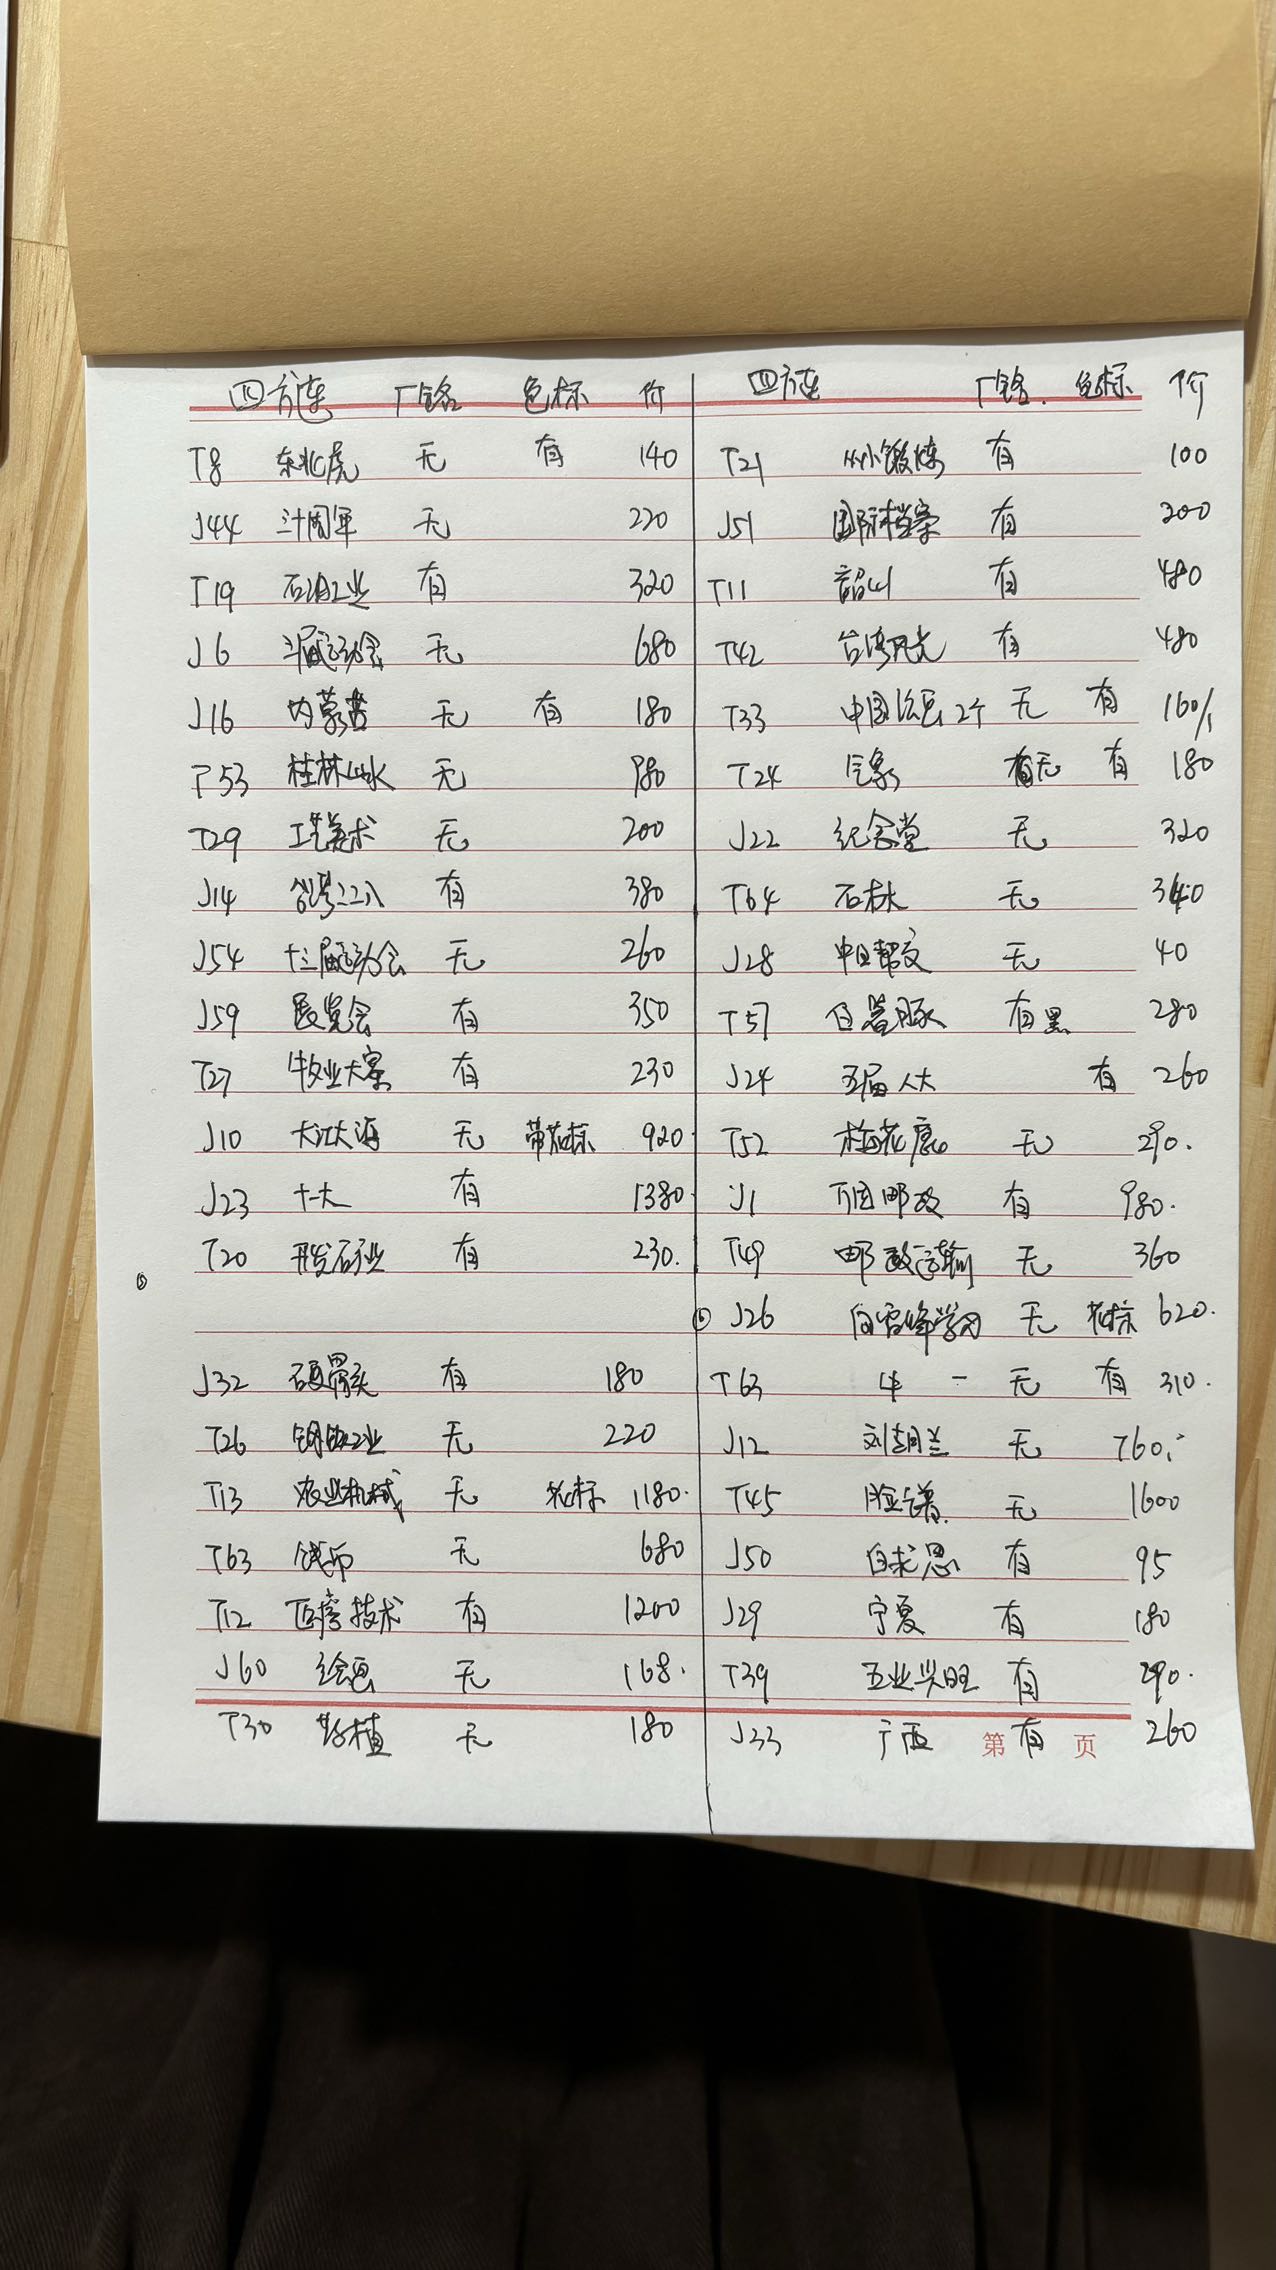 四方连 厂铭 色标 价
T8 东北虎 无 有 140
J44 三十周年 无 220
T19 石油工业 有 320
J6 三届运动会 无 680
J16 内蒙古 无 有 180
T53 桂林山水 无 980
T29 工艺美术 无 200
J14 台湾二二八 有 380
J54 十三届运动会 无 260
J59 展览会 有 350
T27 牧业大寨 有 230
J10 大江大海 无 带花标 920
J23 十一大 有 1380
T20 开发石矿业 有 230.
J32 硬骨头 有 180
T26 钢铁工业 无 220
T13 农业机械 无 花标 1180.
T63 钱币 无 680
T12 医疗技术 有 1200
J60 绘画 无 168.
T30 药植 无 180
四方连 厂铭. 色标 价
T21 从小锻炼 有 100
J51 国际档案 有 200
T11 韶山 有 480
T42 台湾风光 有 480
T33 中国绘画 2个 无 有 160/1
T24 气象 无 有 180
J22 纪念堂 无 320
T64 石林 无 340
J28 中日帮交 无 40
T57 白暨豚 有黑 280
J24 五届人大 有 260
T52 梅花鹿 无 290.
J1 万国邮政 有 980.
T49 邮政运输 无 360
⑥ J26 向雷锋学习 无 花标 620.
T63 牛 一 无 有 310.
J12 刘胡兰 无 760.
T45 脸谱 无 1600
J50 白求恩 有 95
J29 宁夏 有 180
T39 五业兴旺 有 290.
J33 广西 有 260
第 页